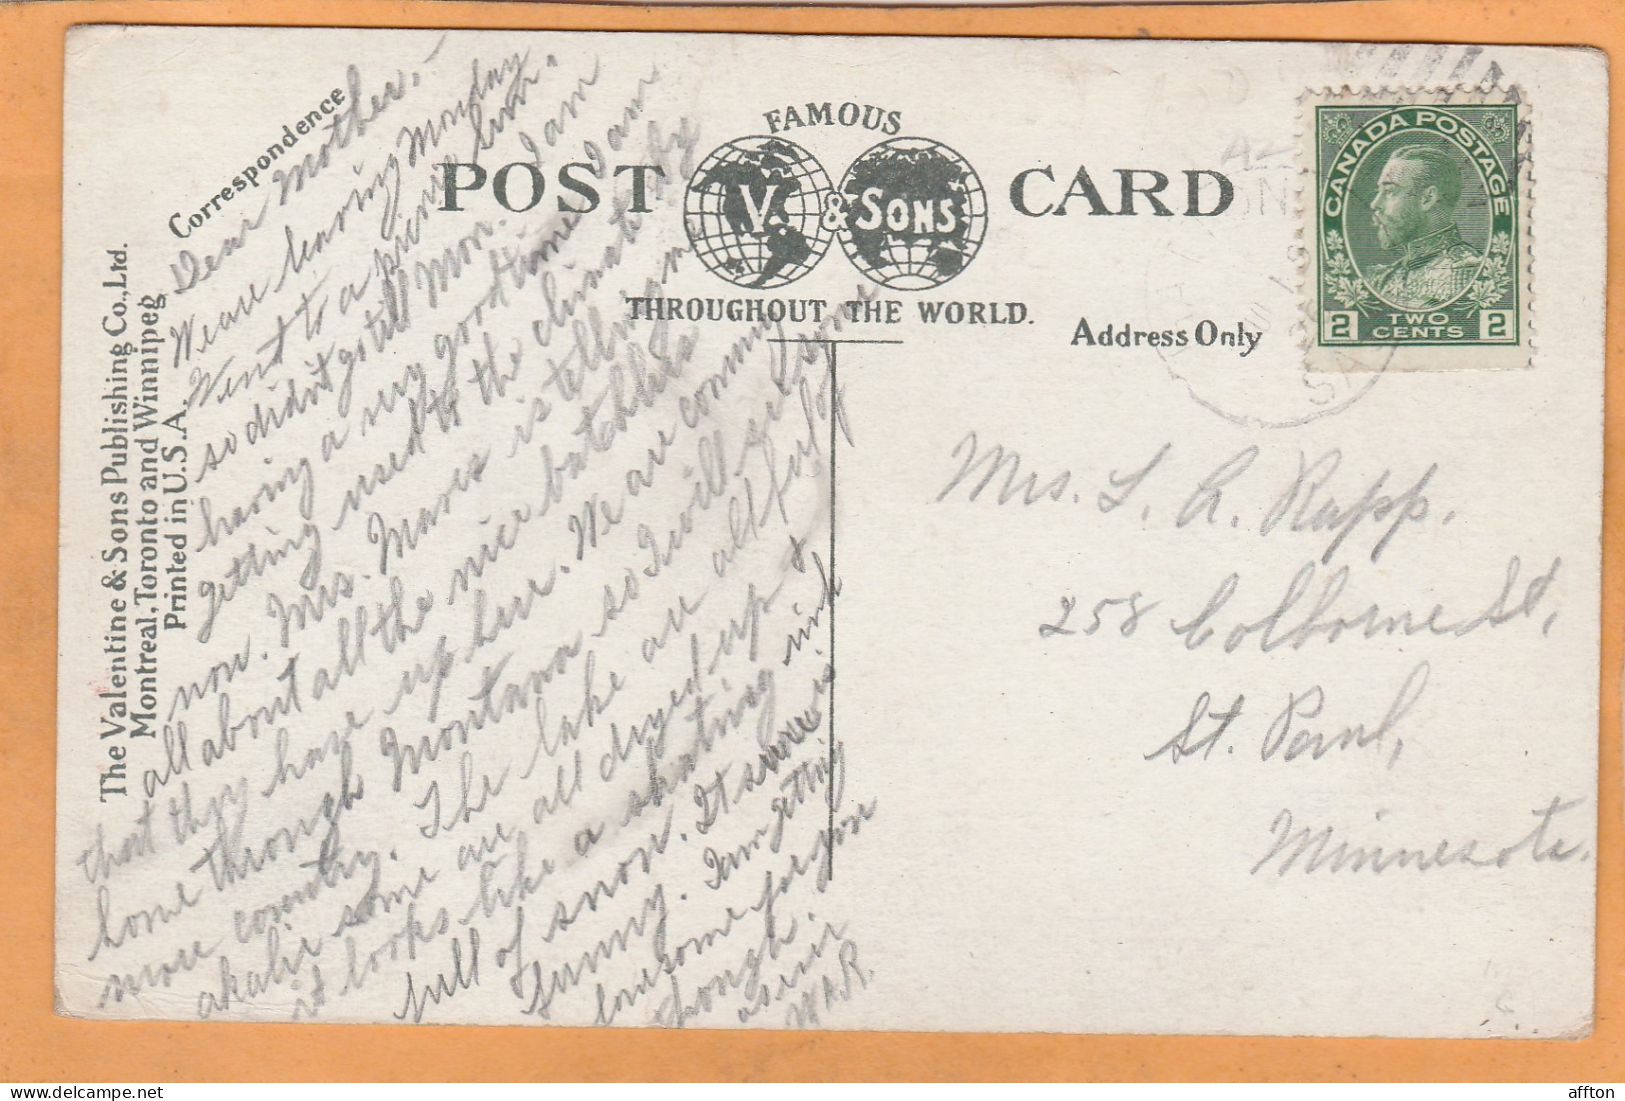 Correspondence
The Valentine & Sons Publishing Co., Ltd.
Montreal, Toronto and Winnipeg
Printed in U.S.A.
FAMOUS
POST CARD
V. & SONS
THROUGHOUT THE WORLD.
Address Only
CANADA POSTAGE
2 TWO CENTS 2
Dear Mother:-
We are leaving Monday
Went to a picnic
so didn't go till Mon. I am
having a very good time I am
getting used to the climate by
now. Mrs. Mares is telling me
all about all the nice
that they have up here. We are coming
home through Montana so I will see some
more country. The lake are all full of
some are all dryed up &
it looks like a skating rink
full of snow. It
funny. I am getting
lonesome for you
though.
as ever
W.A.R.
Mrs. L. A. Rapp.
258 Colborne St,
St. Paul,
Minnesota.
affton